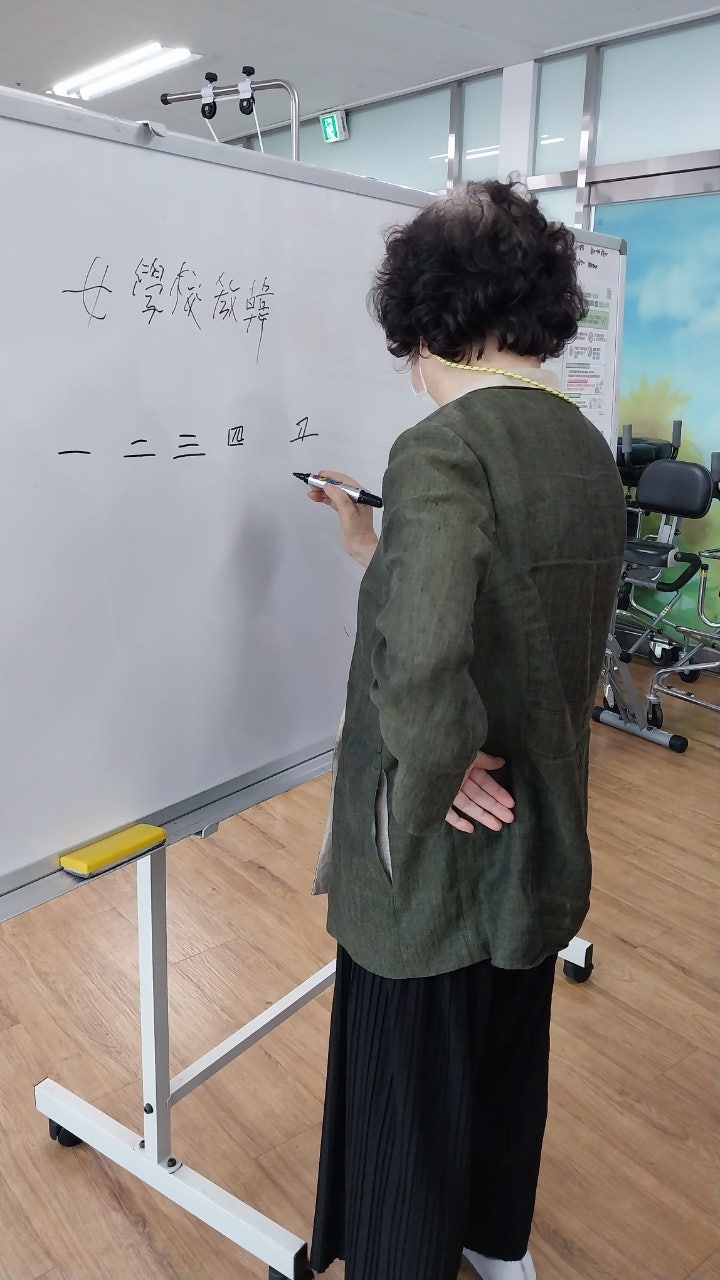 女學校敎韓
一 二 三 四 五